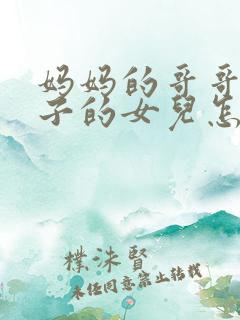 妈妈的哥哥
子的女兒怎
樸洙賢
未经同意禁止转载